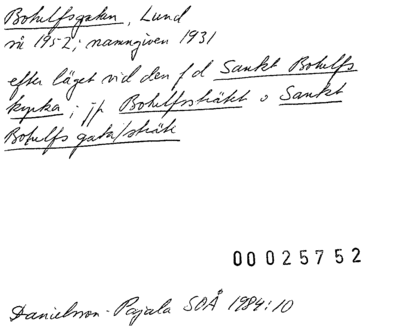 Botulfsgatan, Lund
nu 1952; namngiven 1931
efter läget vid den f d Sankt Botulfs
kyrka; jfr Botulfsstråket o Sankt
Botulfs gata/stråk
00025752
Danielsson-Pajala SOÅ 1984:10